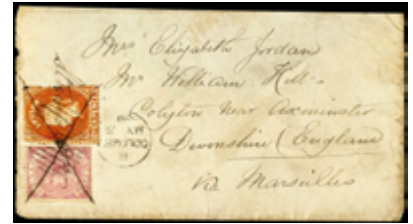 Mrs Elizabeth Jordan
Mr William Hill's
Colyton Near Axminster
Devonshire (England
Via Marseilles
GOOLWA
MY